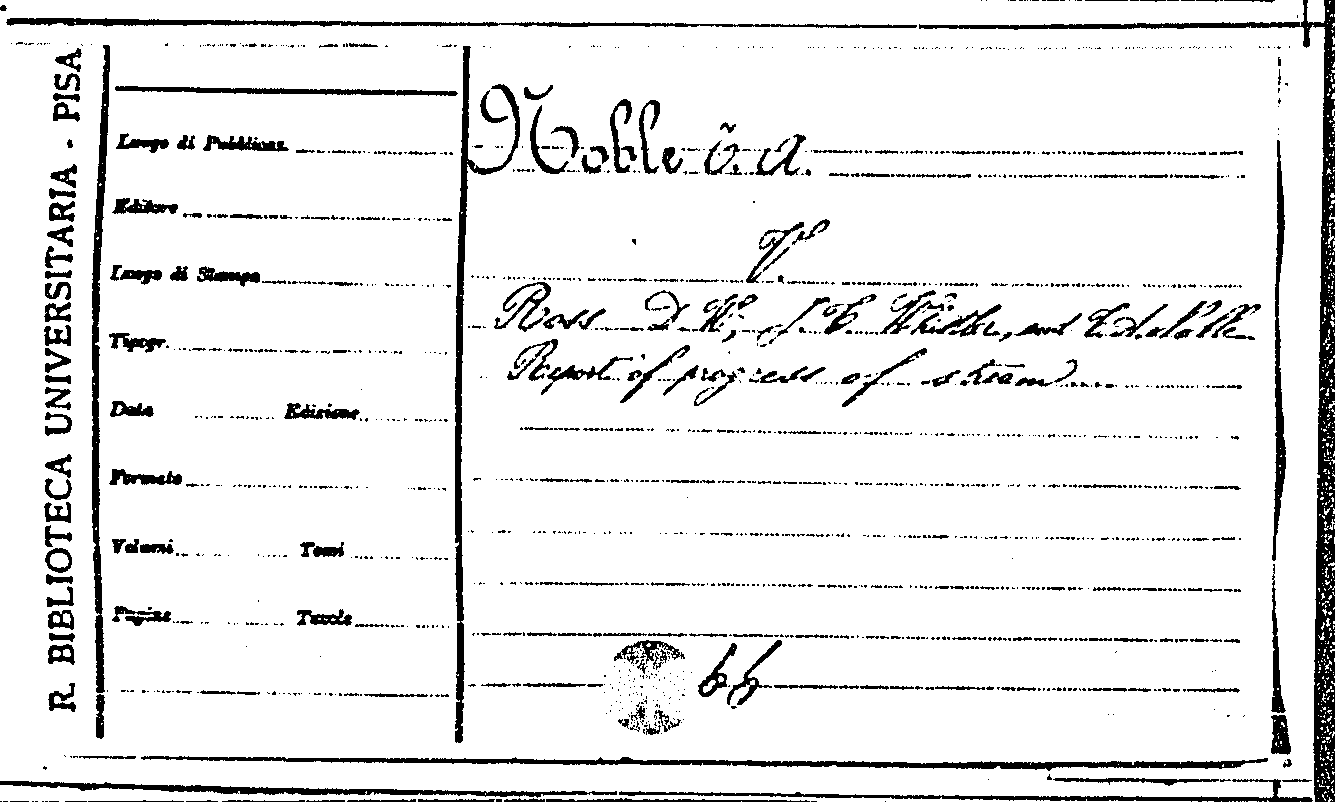 R. BIBLIOTECA UNIVERSITARIA - PISA
Luogo di Pubblicaz.
Editore
Luogo di Stampa
Tipogr.
Data Edizione
Formato
Volumi Tomi
Pagine Tavole
Noble C. A.
V.
Ross D. W., J. C. Whistler, and C. A. Noble
Report of progress of stream....
66